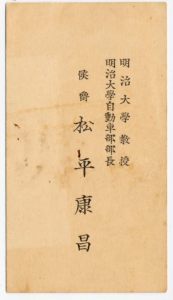 明治大學教授
明治大學自動車部部長
侯爵 松平康昌